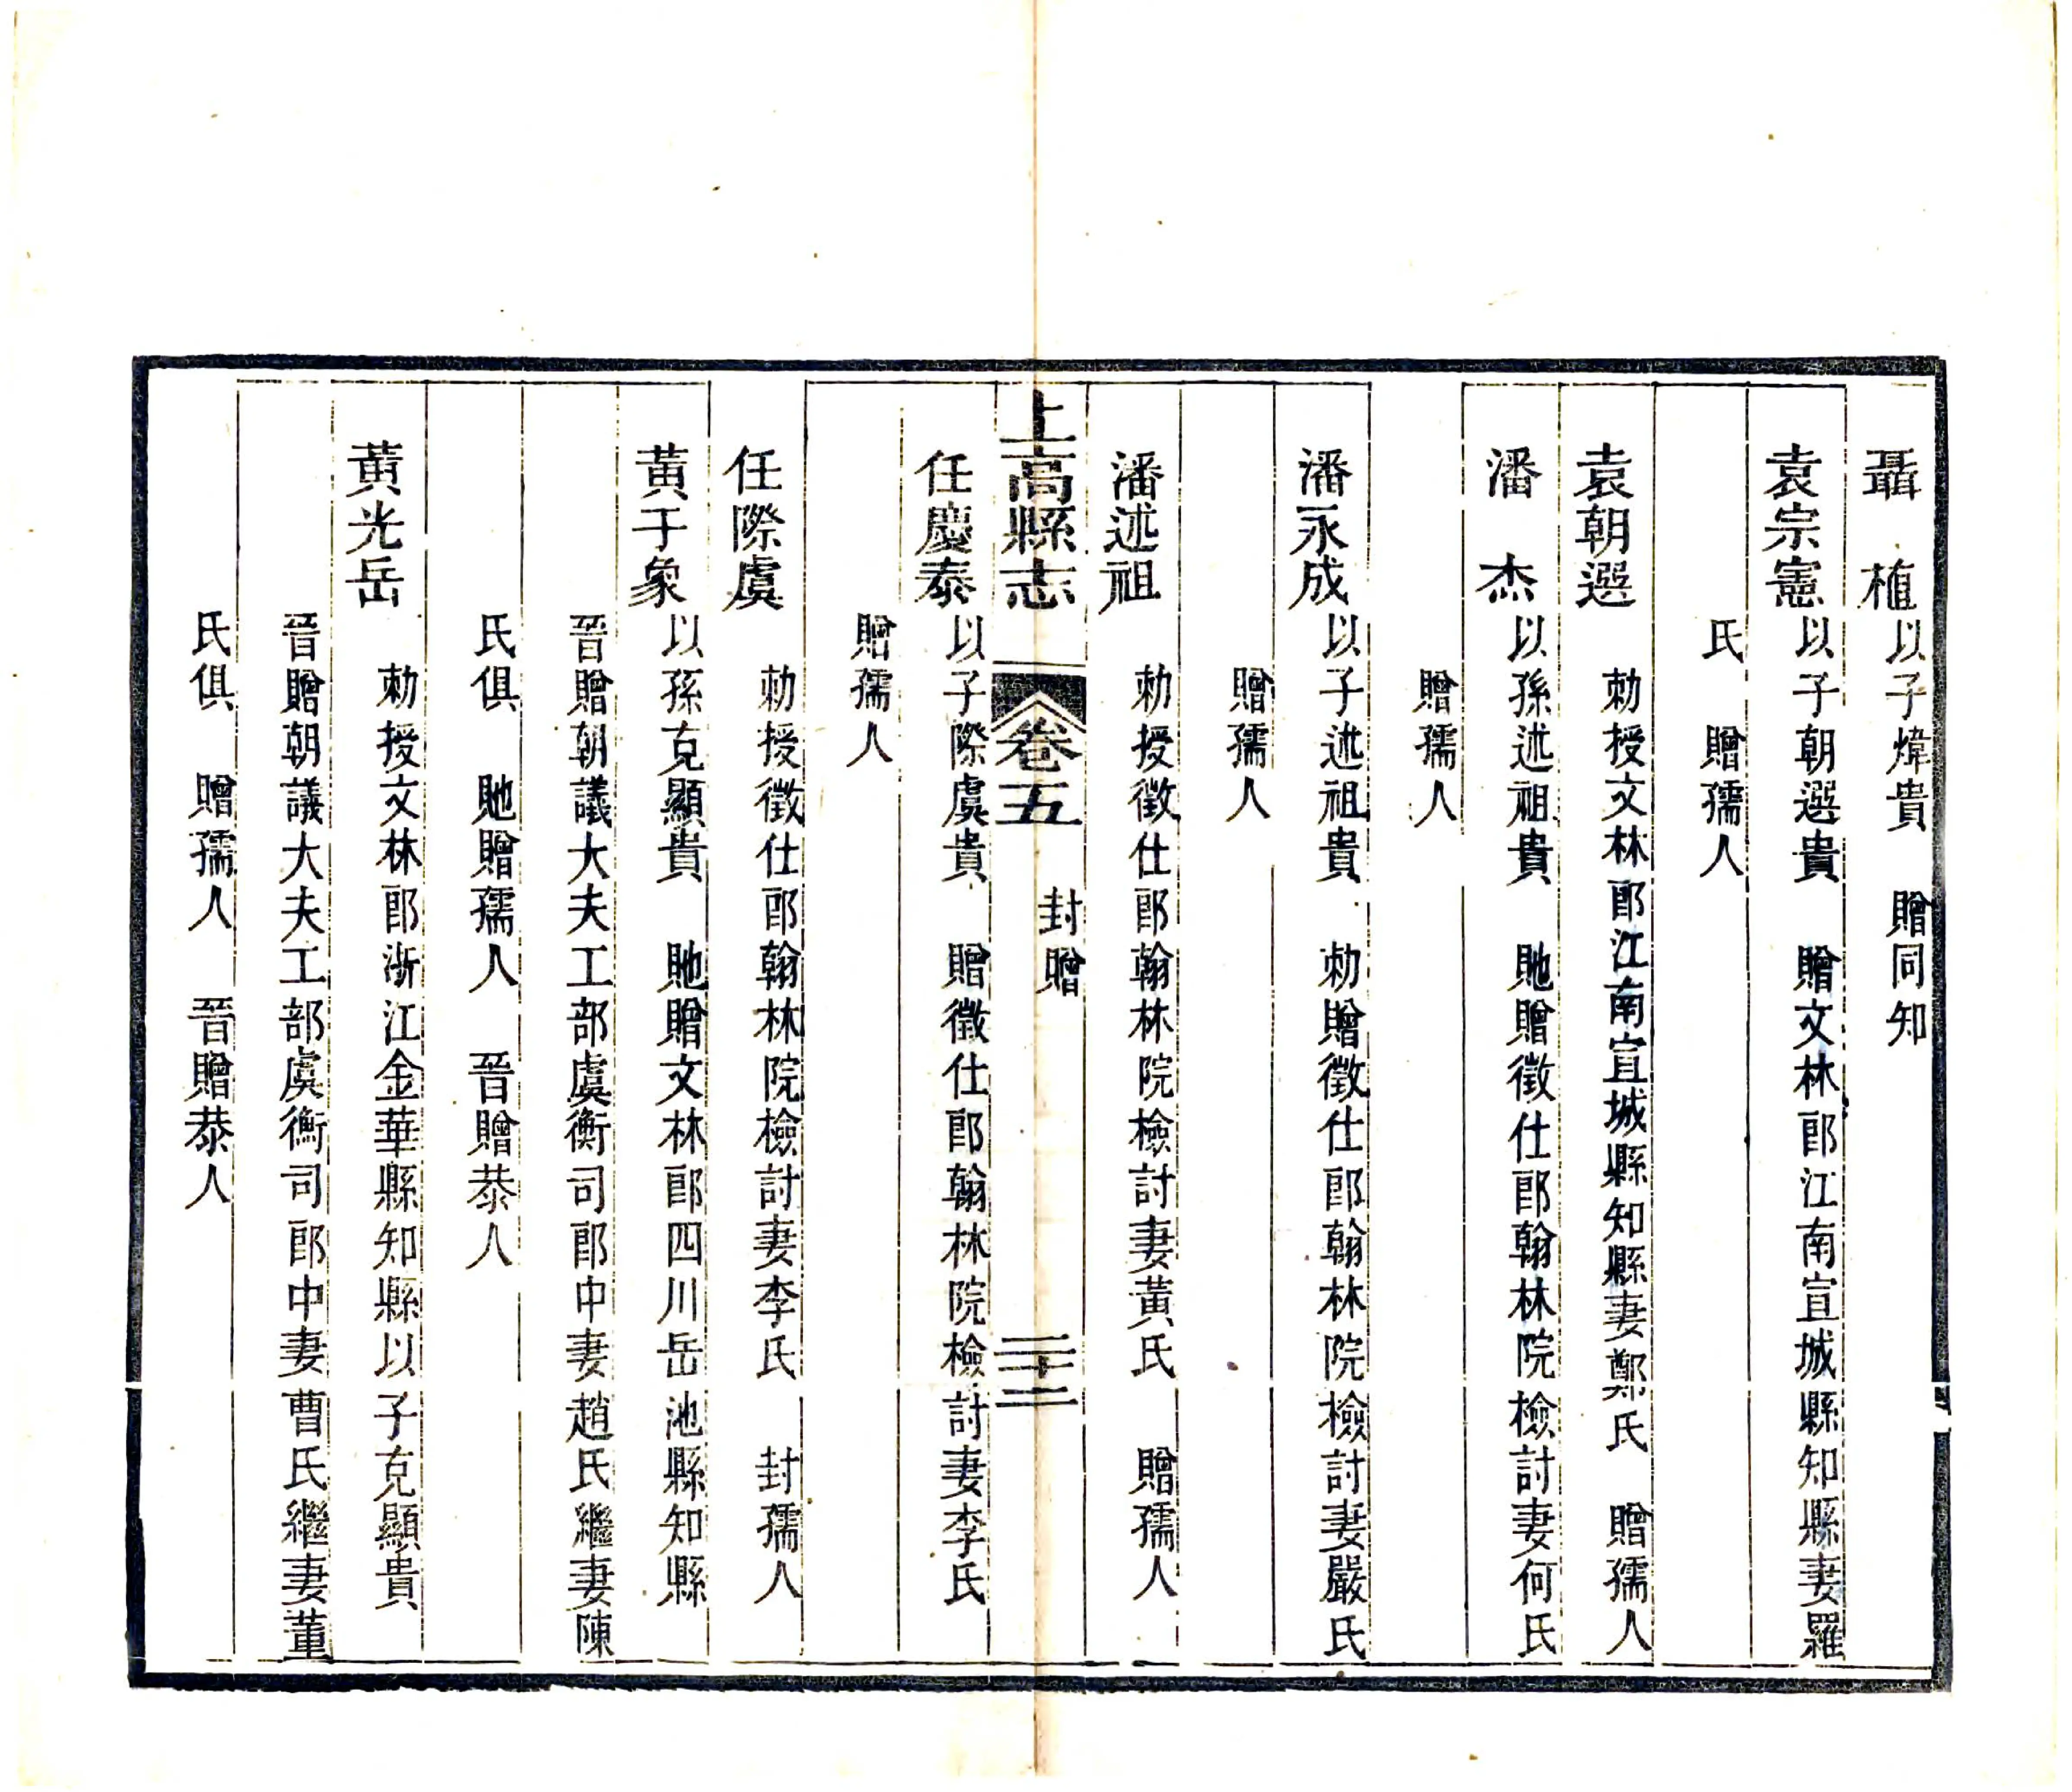 聶　植以子煒貴　贈同知
袁宗憲以子朝選貴　贈文林郎江南宣城縣知縣妻羅
氏　贈孺人
袁朝選　勅授文林郎江南宣城縣知縣妻鄭氏　贈孺人
潘　杰以孫述祖貴　貤贈徵仕郎翰林院檢討妻何氏
贈孺人
潘永成以子述祖貴　勅贈徵仕郎翰林院檢討妻嚴氏
贈孺人
潘述祖　勅授徵仕郎翰林院檢討妻黃氏　贈孺人
上高縣志　卷五　封贈　三十二
任慶泰以子際虞貴　贈徵仕郎翰林院檢討妻李氏
贈孺人
任際虞　勅授徵仕郎翰林院檢討妻李氏　封孺人
黃于象以孫克顯貴　貤贈文林郎四川岳池縣知縣
晉贈朝議大夫工部虞衡司郎中妻趙氏繼妻陳
氏俱　貤贈孺人　晉贈恭人
黃光岳　勅授文林郎浙江金華縣知縣以子克顯貴
晉贈朝議大夫工部虞衡司郎中妻曹氏繼妻董
氏俱　贈孺人　晉贈恭人